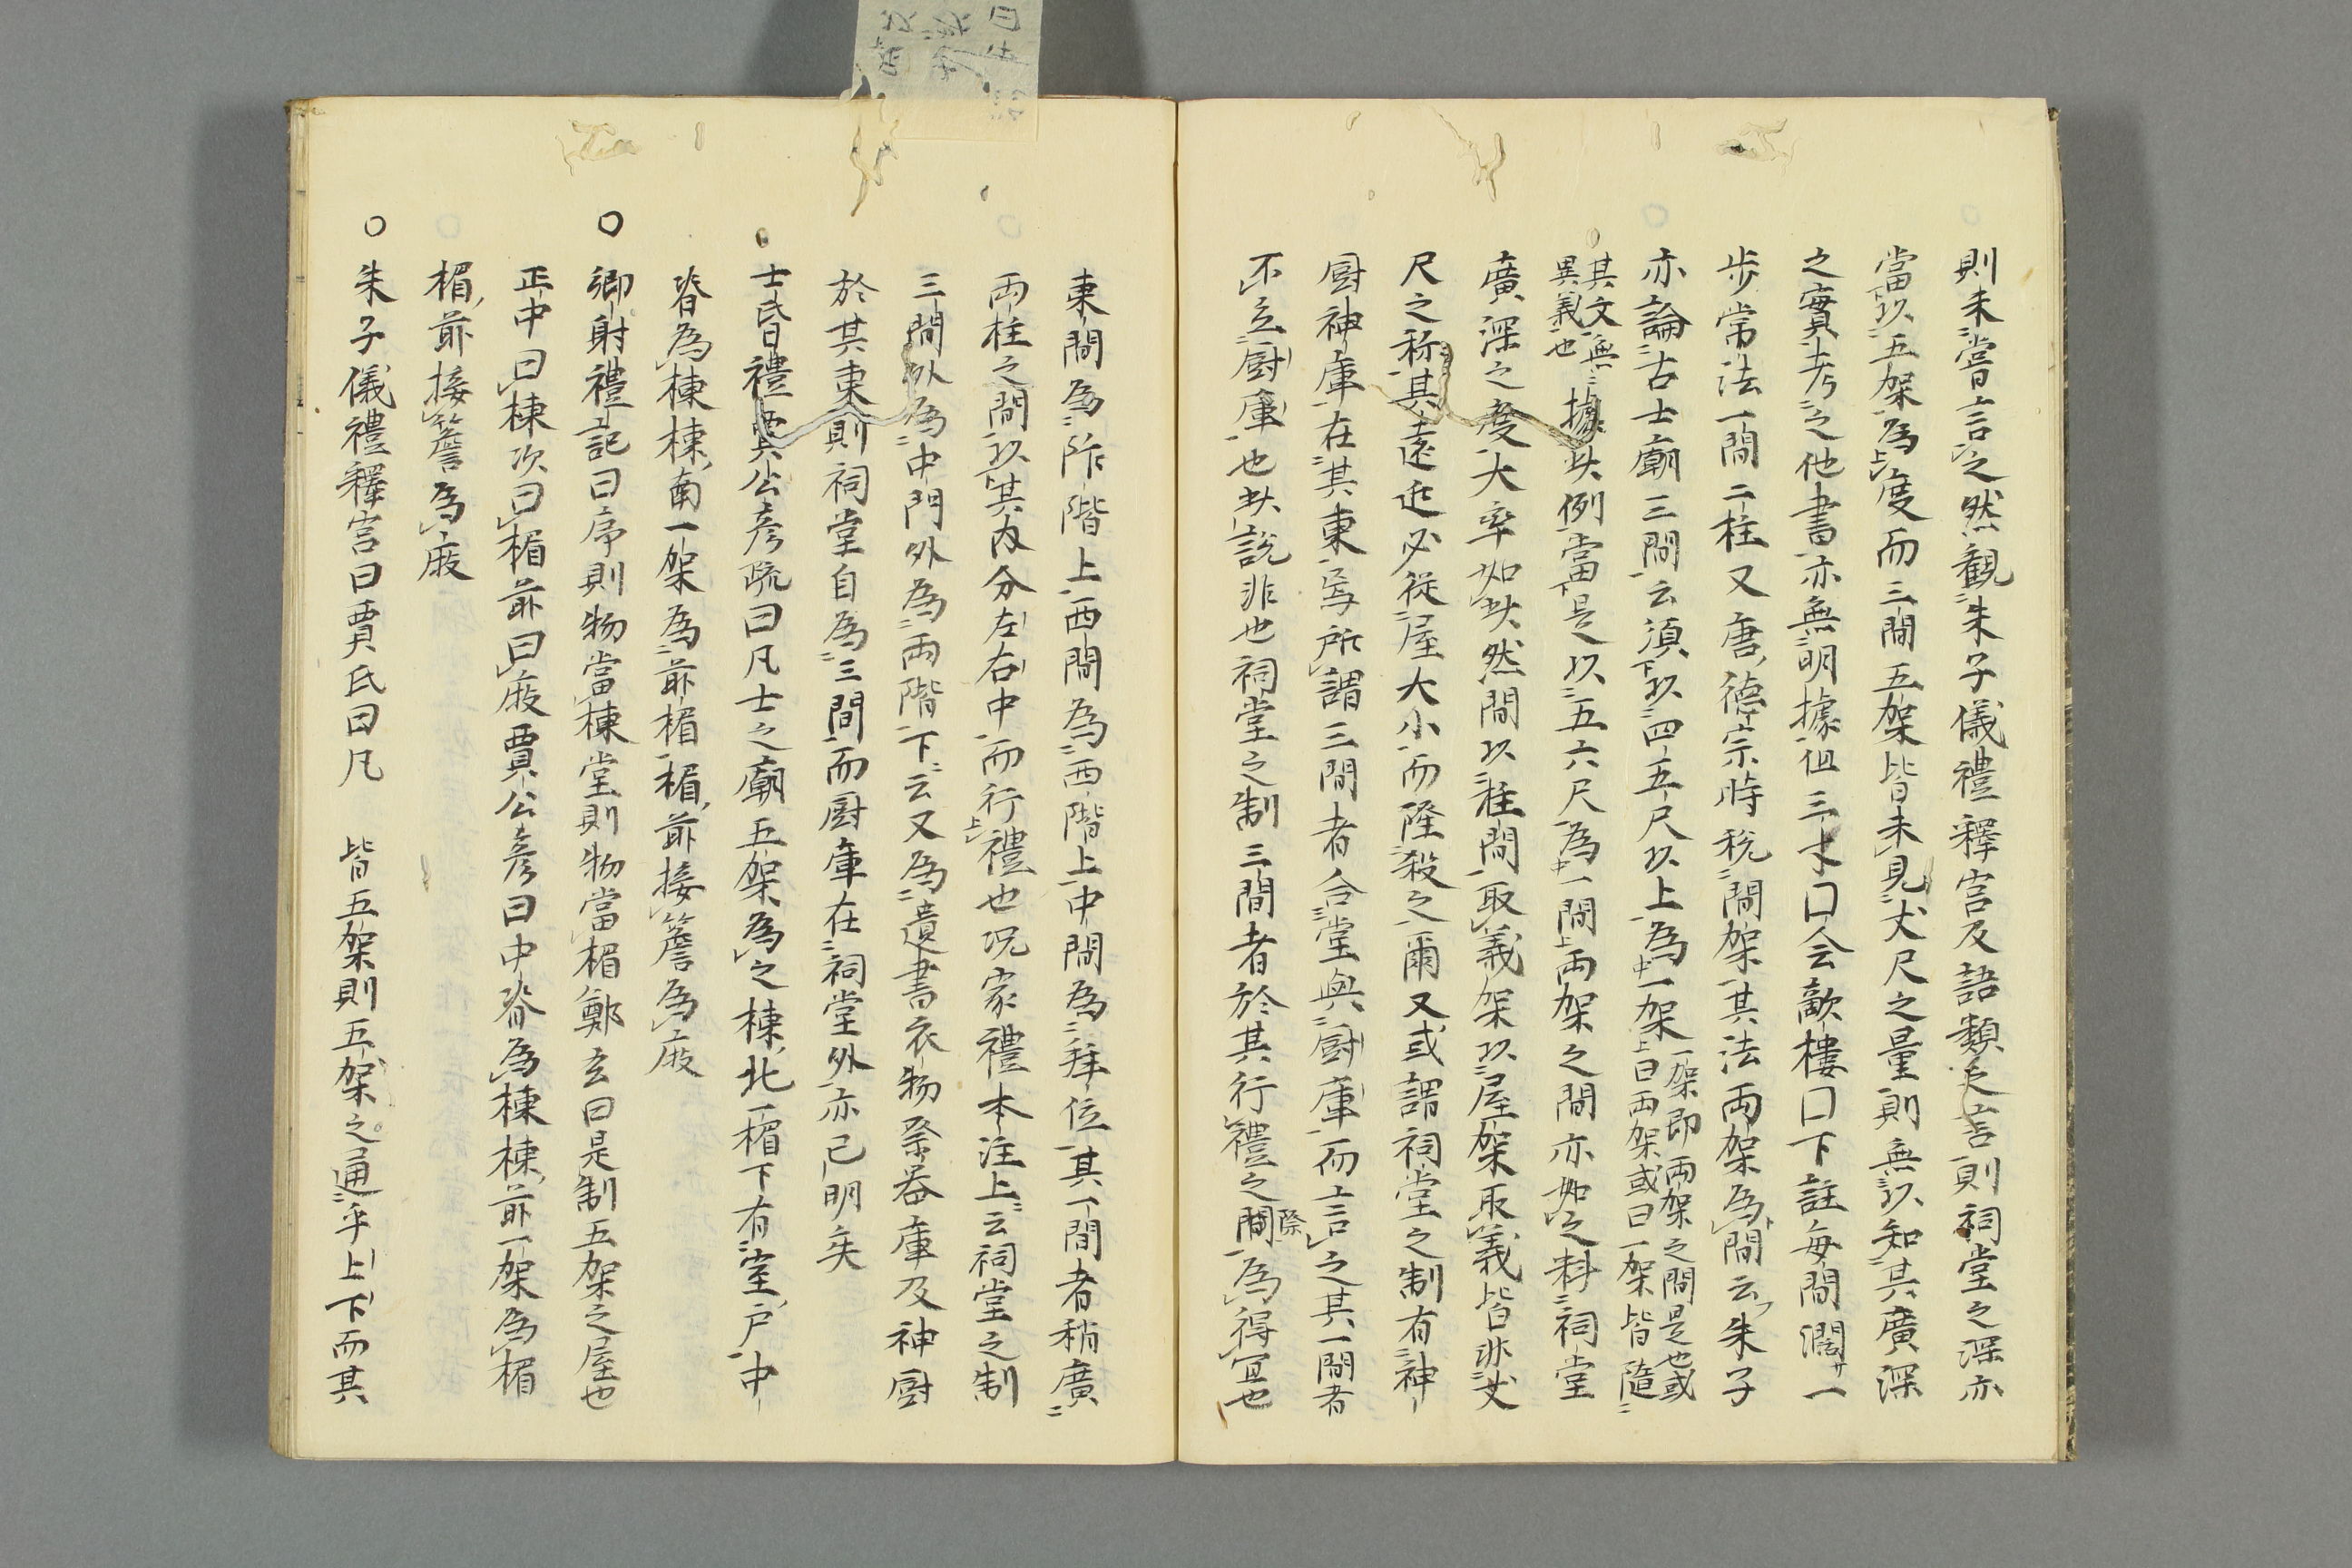 則未嘗言之然觀朱子儀禮釋宮及語類之言則祠堂之深亦
當以五架為度而三間五架皆未見丈尺之量則無以知其廣深
之實考之他書亦無明據徂三才口会敵樓口下註毎間濶サ一
步常法一間二柱又唐德宗時税間架其法両架為間云朱子
亦論古士廟三間云須以四五尺以上為一架一架即両架之間是也或曰両架或曰一架皆隨
其文無異義也據此例當是以五六尺為一間両架之間亦如之料祠堂
廣深之度大率如此然間以柱間取義架以屋架取義皆非丈
尺之称其遠近必從屋大小而隆殺之爾又或謂祠堂之制有神
厨神庫在其東焉所謂三間者合堂與厨庫而言之其一間者
不立厨庫也此說非也祠堂之制三間者於其行禮之間際為得宜也
東間為阼階上西間為西階上中間為拜位其一間者稍廣
両柱之間以其內分左右中而行禮也况家禮本注上云祠堂之制
三間外為中門外為両階下云又為遺書衣物祭器庫及神厨
於其東則祠堂自為三間而厨庫在祠堂外亦已明矣
士昏禮賈公彥疏曰凡士之廟五架為之棟北一楣下有室戶中
脊為棟棟南一架為前楣楣前接簷為庪
○鄉射禮記曰序則物當棟堂則物當楣鄭玄曰是制五架之屋也
正中曰棟次曰楣前曰庪賈公彥曰中脊為棟棟前一架為楣
楣前接簷為庪
○朱子儀禮釋宮曰賈氏曰凡 皆五架則五架之通乎上下而其